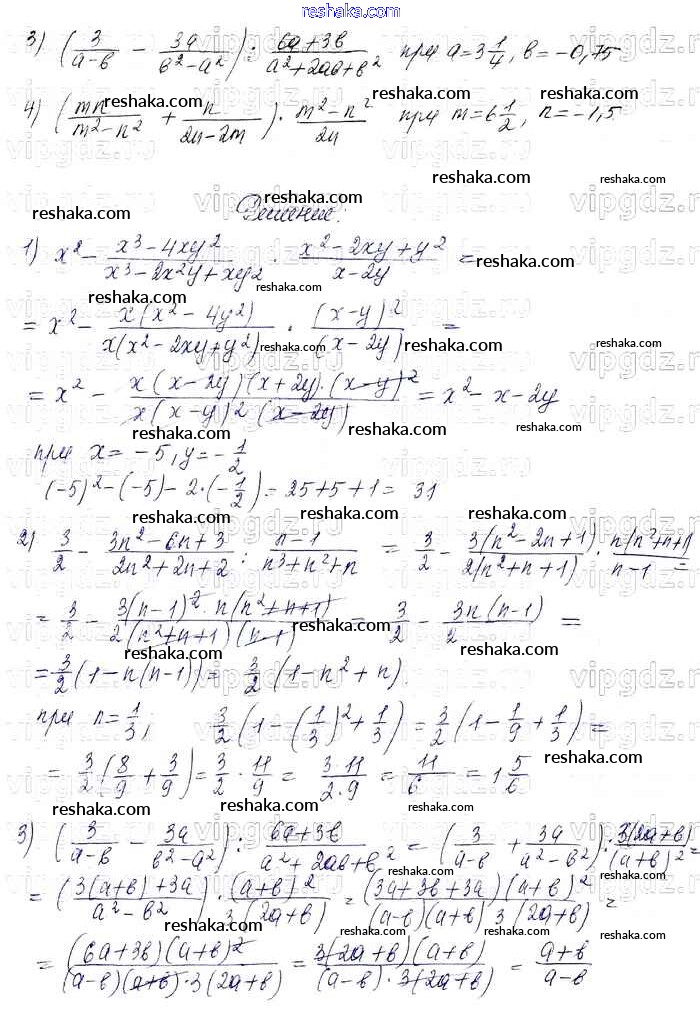 reshaka.com
3) (3/(a-в) - 3a/(в²-a²)) : (6a+3в)/(a²+2aв+в²) при a=3 1/4, в=-0,75
4) (mn/(m²-n²) + n/(2n-2m)) · (m²-n²)/(2n) при m=6 1/2, n=-1,5
Решение:
1) x² - (x³-4xy²)/(x³-2x²y+xy2) · (x²-2xy+y²)/(x-2y) =
= x² - x(x²-4y²)/(x(x²-2xy+y²)) · (x-y)²/(x-2y) =
= x² - x(x-2y)(x+2y)·(x-y)²/(x(x-y)2(x-2y)) = x²-x-2y
при x=-5, y=-1/2
(-5)²-(-5)-2·(-1/2)=25+5+1=31
2) 3/2 - (3n²-6n+3)/(2n²+2n+2) : (n-1)/(n³+n²+n) = 3/2 - 3(n²-2n+1)/(2(n²+n+1)) · n(n²+n+1)/(n-1) =
= 3/2 - 3(n-1)²·n(n²+n+1)/(2(n²+n+1)(n-1)) = 3/2 - 3n(n-1)/2 =
= 3/2(1-n(n-1)) = 3/2(1-n²+n).
при n=1/3, 3/2(1-(1/3)²+1/3) = 3/2(1-1/9+1/3) =
= 3/2(8/9+3/9) = 3/2 · 11/9 = 3·11/(2·9) = 11/6 = 1 5/6
3) (3/(a-в) - 3a/(в²-a²)) : (6a+3в)/(a²+2aв+в²) = (3/(a-в) + 3a/(a²-в²)) : 3(2a+в)/(a+в)² =
= (3(a+в)+3a)/(a²-в²) · (a+в)²/(3(2a+в)) = (3a+3в+3a)(a+в)²/((a-в)(a+в)3(2a+в)) =
= (6a+3в)(a+в)²/((a-в)(a+в)·3(2a+в)) = 3(2a+в)(a+в)/((a-в)·3(2a+в)) = (a+в)/(a-в)